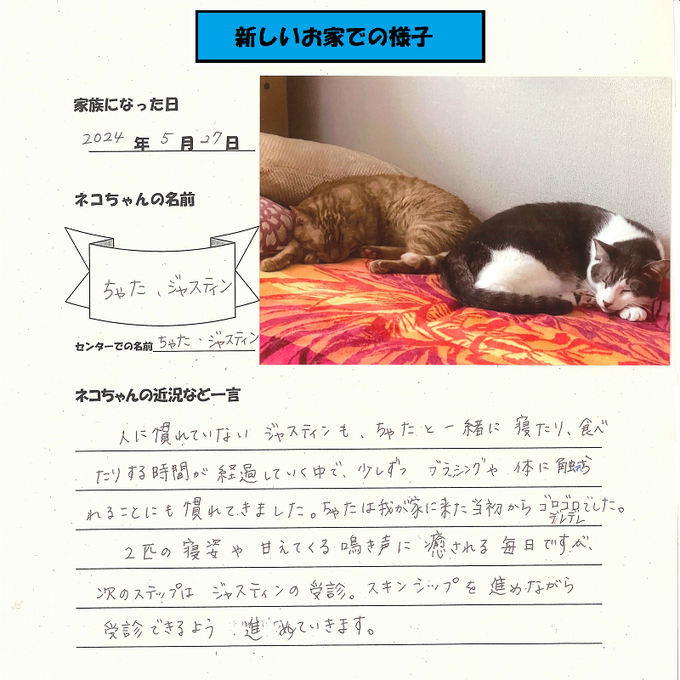 新しいお家での様子
家族になった日
2024 年 5 月 27 日
ネコちゃんの名前
ちゃた、ジャスティン
センターでの名前 ちゃた・ジャスティン
ネコちゃんの近況など一言
人に慣れていない ジャスティンも、ちゃたと一緒に 寝たり、食べ
たりする時間が 経過していく中で、少しずつ ブラッシングや 体に触ら
れることにも慣れてきました。ちゃたは我が家に来た当初から ゴロゴロでした。
デレデレ
2匹の寝姿や 甘えてくる鳴き声に 癒される 毎日ですが、
次のステップは ジャスティンの 受診。スキンシップを 進めながら
受診できるよう 進めていきます。